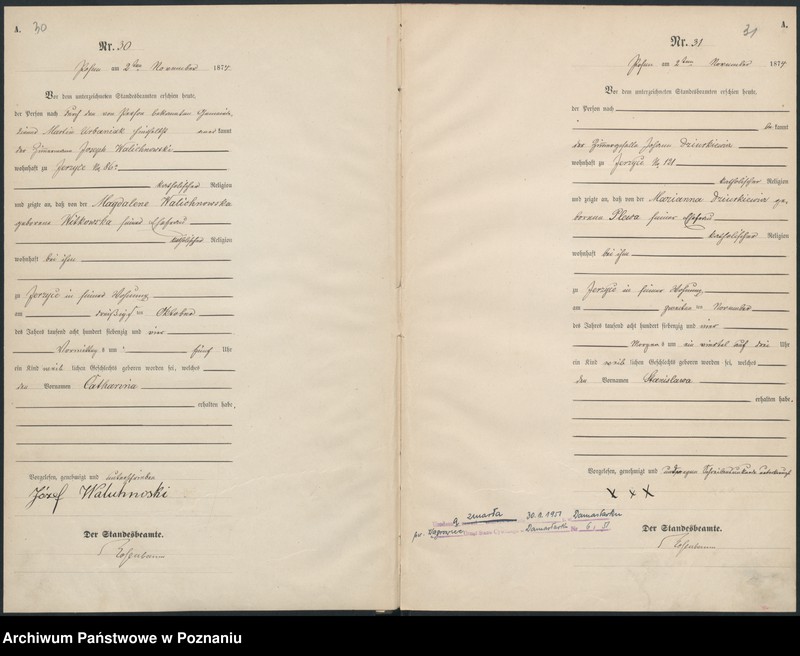 A. 30
Nr. 30
Posen am 2ten November 1874.
Vor dem unterzeichneten Standesbeamten erschien heute,
der Person nach durch den von Person bekannten Gemeinde
diener Martin Urbaniak anerkannt
der Zimmermann Joseph Walichnowski
wohnhaft zu Jerzyce No 86
katholischer Religion
und zeigte an, daß von der Magdalene Walichnowska
geborene Witkowska seiner Ehefrau
katholischer Religion
wohnhaft bei ihm
zu Jerzyce in seiner Wohnung
am dreißigsten Oktober
des Jahres tausend acht hundert siebenzig und vier
Vormittags um fünf Uhr
ein Kind weiblichen Geschlechts geboren worden sei, welches
den Vornamen Catharina
erhalten habe.
Vorgelesen, genehmigt und unterschrieben
Józef Walichnoski
Der Standesbeamte.
A.
31
Nr. 31
Posen am 2ten November 1874
Vor dem unterzeichneten Standesbeamten erschien heute,
der Person nach
bekannt
der Johann Dziurkiewicz
wohnhaft zu Jerzyce No 121
katholischer Religion
und zeigte an, daß von der Marianna Dziurkiewicz ge-
borene Plewa seiner Ehefrau
katholischer Religion
wohnhaft bei ihm
zu Jerzyce in seiner Wohnung
am zweiten November
des Jahres tausend acht hundert siebenzig und vier
Morgens um ein viertel auf drei Uhr
ein Kind weiblichen Geschlechts geboren worden sei, welches
den Vornamen Stanislawa
erhalten habe.
Vorgelesen, genehmigt und
x x x
zmarła 30.1.1951 Damasławku
pow Wągrowiec Damasławek 6 51
Der Standesbeamte.
Archiwum Państwowe w Poznaniu